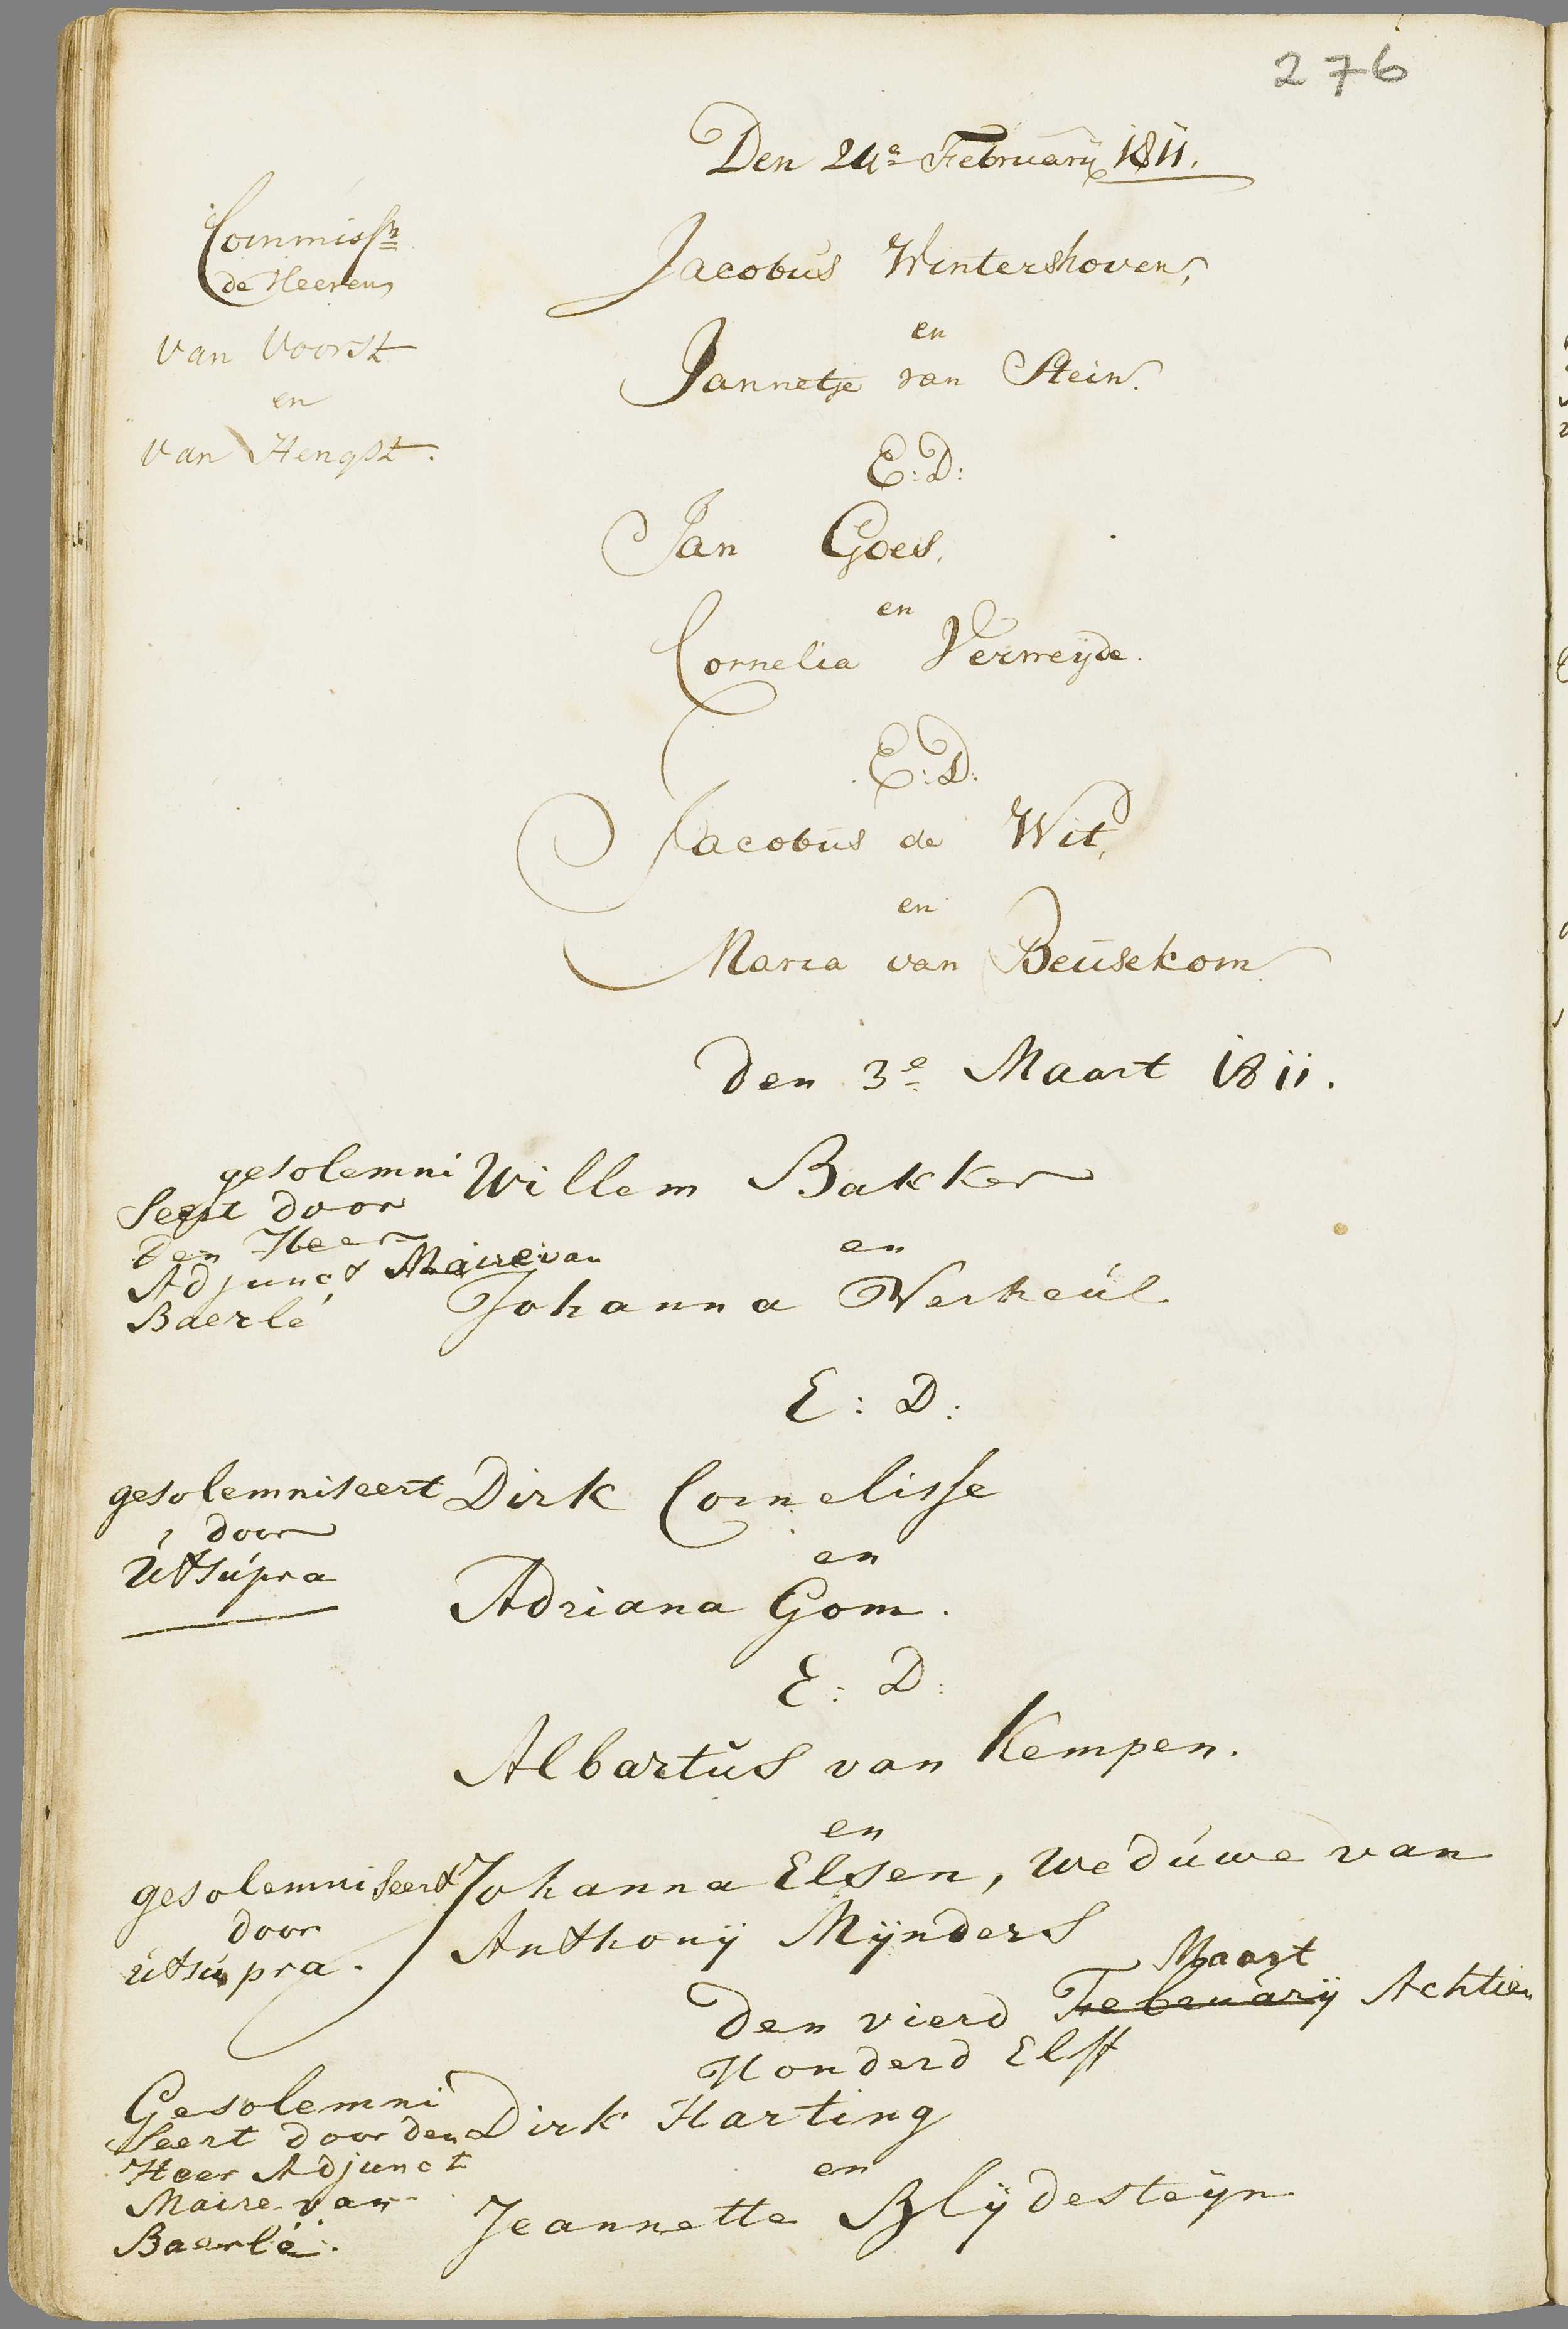 276
Den 24e February 1811.
Commissn
de Heeren
van Voorst
en
van Hengst.
Jacobus Wintershoven,
en
Jannetje van Stein.
E: D:
Jan Goes,
en
Cornelia Verweyde.
E: D:
Jacobus de Wit,
en
Maria van Beusekom
Den 3e Maart 1811.
gesolemni
seert door
den Heer
Adjunct Maire van
Baerlé
Willem Bakker
en
Johanna Verheul
E: D:
gesolemniseert
door
utsupra
Dirk Cornelisse
en
Adriana Gom.
E: D:
Albartus van Kempen.
en
gesolemniseert
door
utsupra.
Johanna Elsen, weduwe van
Anthony Mynders
Maart
Den vierd February Achtien
Honderd Elff
Gesolemni
seert door den
Heer Adjunct
Maire van
Baerlé.
Dirk Harting
en
Jeannette Blydesteyn